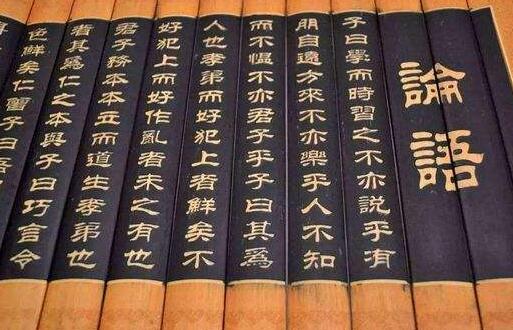 論語
子曰學而時習之不亦說乎有
朋自遠方來不亦樂乎人不知
而不慍不亦君子乎子曰其爲
人也孝弟而好犯上者鮮矣不
好犯上而好作亂者未之有也
君子務本本立而道生孝弟也
者其爲仁之本與子曰巧言令
色鮮矣仁曾子曰吾